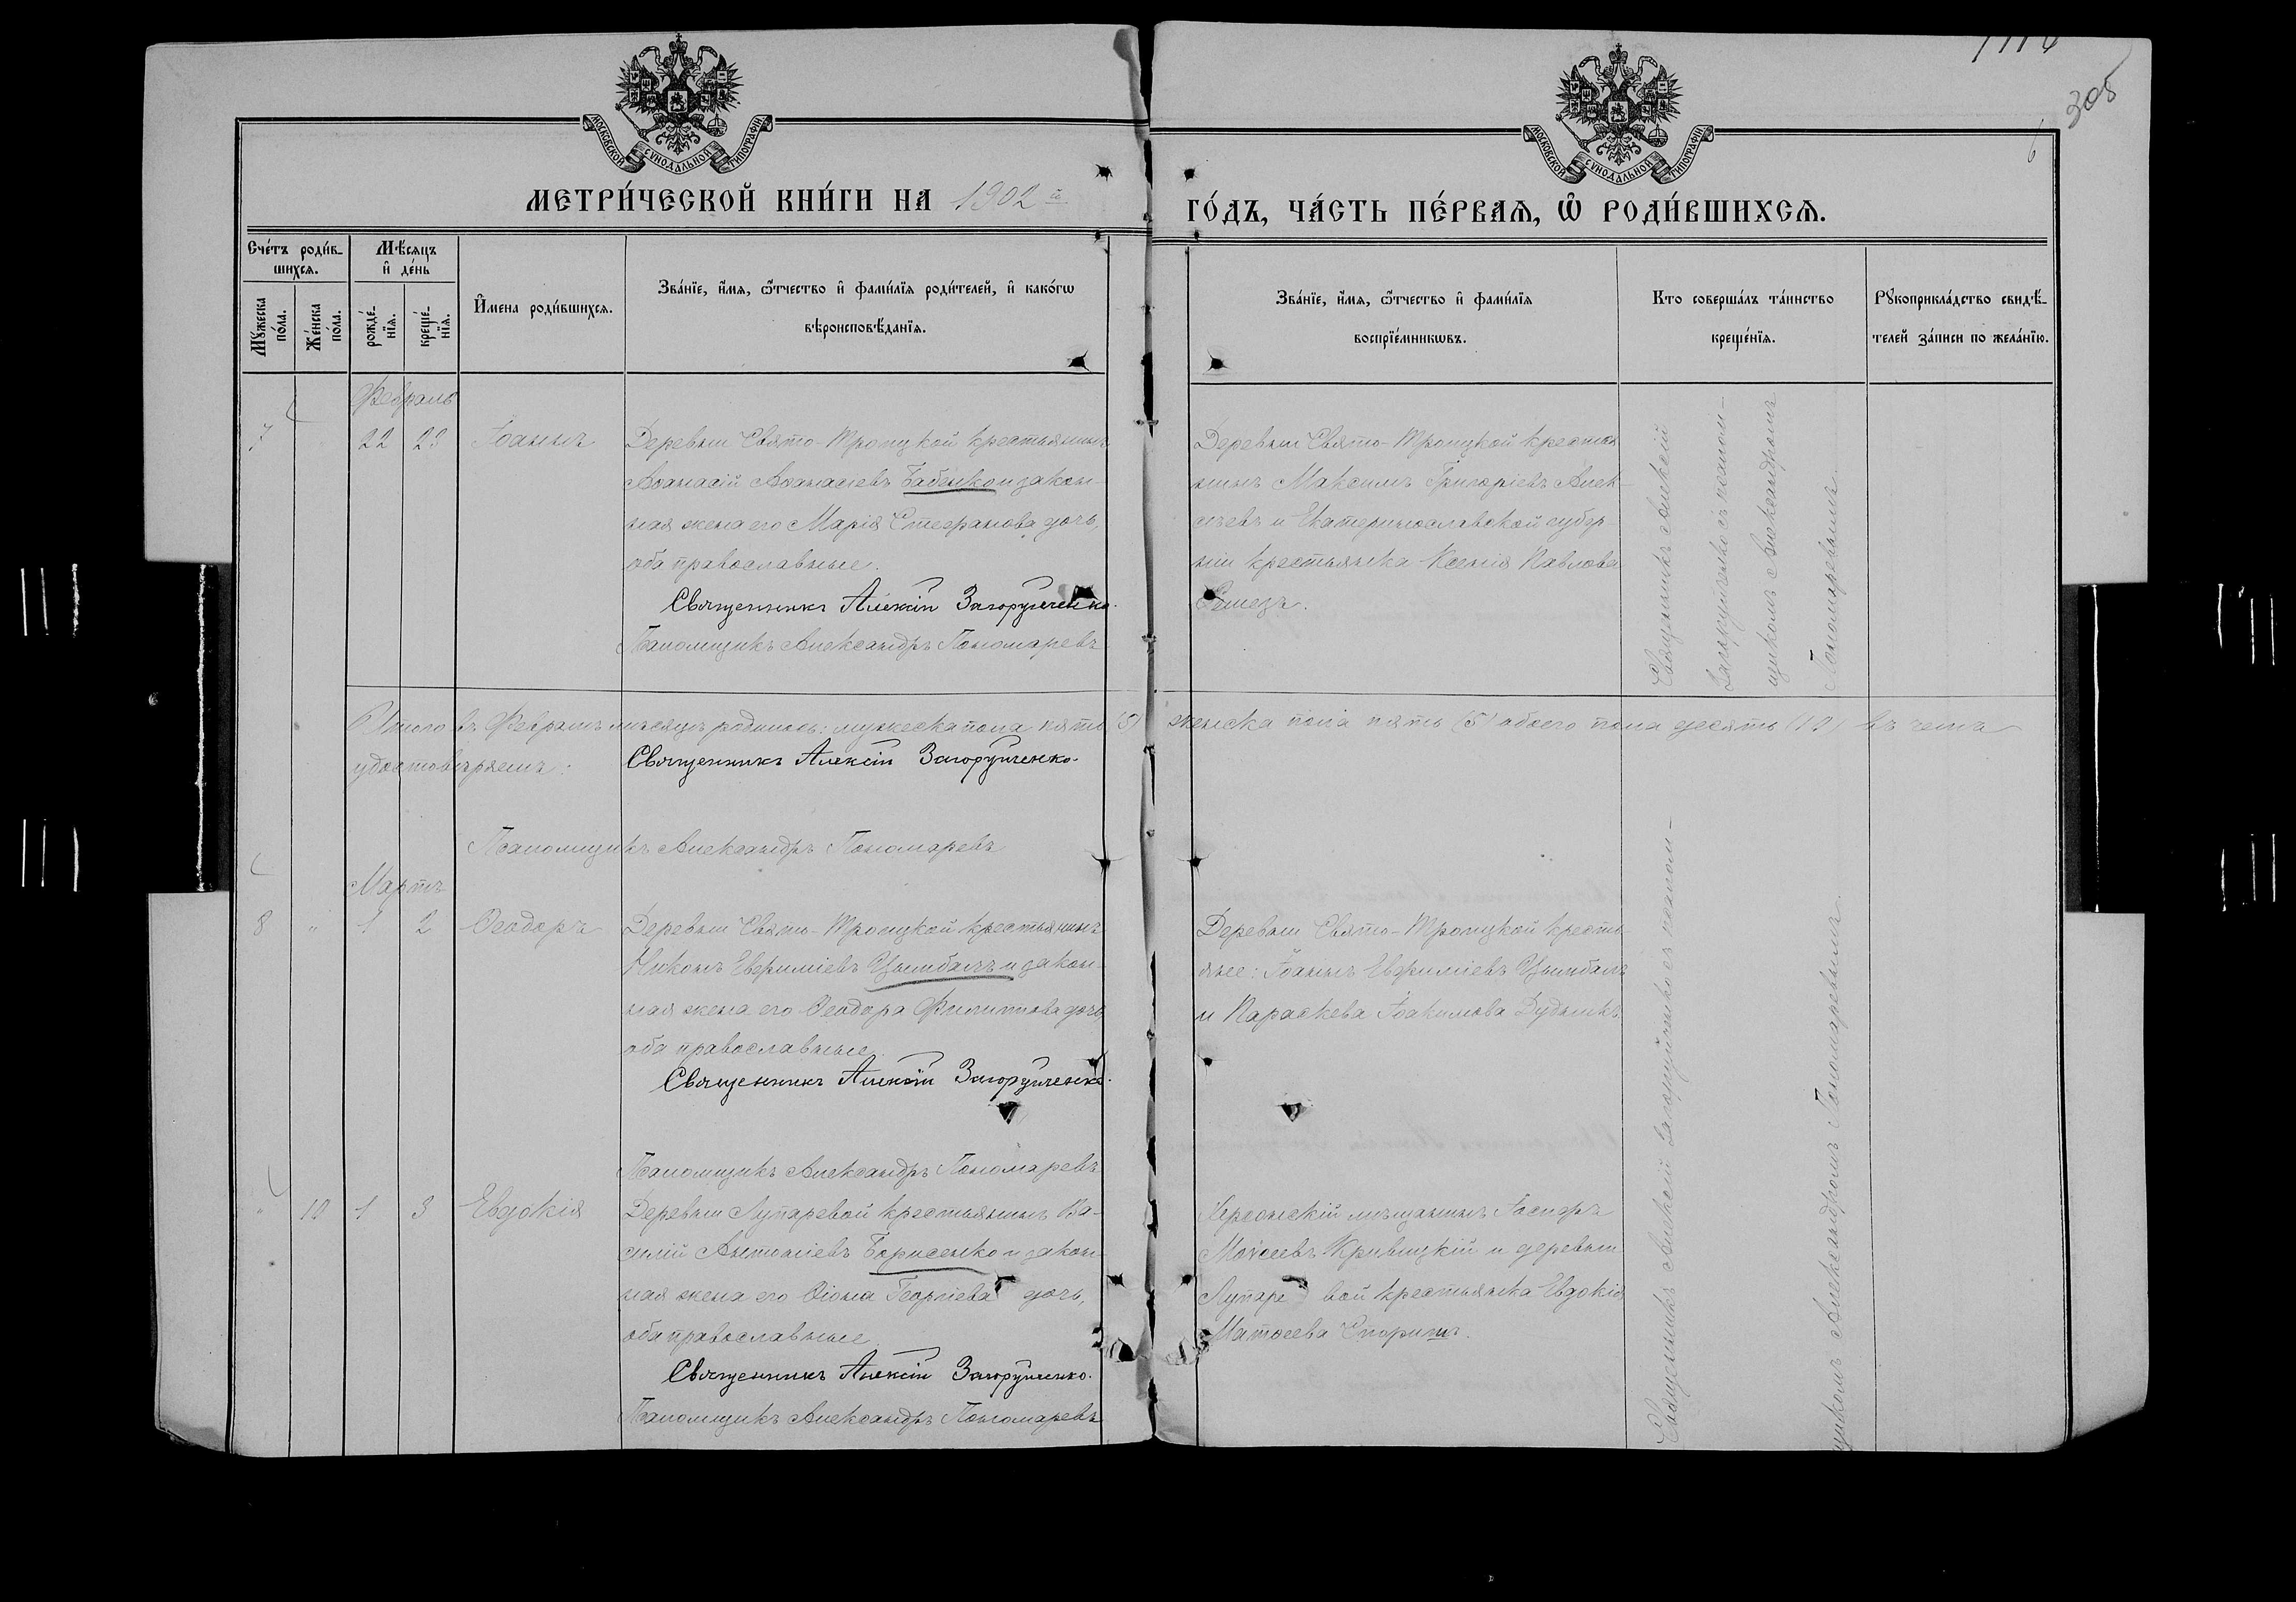 305
6
МОСКОВСКОЙ СѴНОДАЛЬНОЙ ТИПОГРАФІИ
МОСКОВСКОЙ СѴНОДАЛЬНОЙ ТИПОГРАФІИ
МЕТРИ́ЧЕСКОЙ КНИ́ГИ НА 1902й ГО́ДЪ, ЧА́СТЬ ПЕ́РВАѦ, Ѽ РОДИ́ВШИХСѦ.
Сче́тъ роди́в-
шихсѧ.
Мꙋ́жеска
по́ла.
Же́нска
по́ла.
Мѣ́сѧцъ
и҆ де́нь
рожде́-
нїѧ.
креще́-
нїѧ.
И҆мена роди́вшихсѧ.
Зва́нїе, и҆́мѧ, ѻ҆́тчество и҆ фами́лїѧ роди́телей, и҆ како́гѡ
вѣроисповѣ́данїѧ.
Зва́нїе, и҆́мѧ, ѻ҆́тчество и҆ фами́лїѧ
воспрїе́мникѡвъ.
Кто соверша́лъ та́инство
креще́нїѧ.
Рꙋкоприкла́дство свидѣ́-
телей за́писи по жела́нїю.
Февраль
7 22 23 Іоаннъ
Деревни Свято-Троицкой крестьянинъ
Аѳанасій Аѳанасіевъ Бабенко и закон-
ная жена его Марія Стефанова дочь,
оба православные.
Священникъ Алексій Загоруйченко.
Псаломщикъ Александръ Пономаревъ
Деревни Свято-Троицкой крестья
нинъ Максимъ Григоріевъ Алек-
сѣевъ и Екатеринославской губер-
ніи крестьянка Ксенія Павлова
Священникъ Алексій
Загоруйченко съ псалом-
щикомъ Александромъ
Пономаревымъ.
Итого въ Февралѣ мѣсяцѣ родилось: мужеска пола пять (5) женска пола пять (5) обоего пола десять (10) въ чемъ
удостовѣряемъ:
Священникъ Алексій Загоруйченко.
Псаломщикъ Александръ Пономаревъ
Мартъ
8 " 1 2 Ѳеодоръ
Деревни Свято-Троицкой крестьянинъ
Никонъ Евфиміевъ Цымбалъ и закон
ная жена его Ѳеодора Филиппова дочь
оба православные.
Священникъ Алексій Загоруйченко.
Псаломщикъ Александръ Пономаревъ
Деревни Свято-Троицкой кресть-
яне: Іоаннъ Евфиміевъ Цымбалъ
и Параскева Іоакимова Дудникъ
" 10 1 3 Евдокія
Деревни Лупаревой крестьянинъ Ва-
силій Антоніевъ Борисенко и закон-
ная жена его Ѳіона Георгіева дочь,
оба православные
Священникъ Алексій Загоруйченко.
Псаломщикъ Александръ Пономаревъ
Херсонскій мѣщанинъ Гаспаръ
Моѵсеевъ Кривицкій и деревни
Лупаревой крестьянка Евдокія
Матѳеева
Священникъ Алексій Загоруйченко съ псалом-
щикомъ Александромъ Пономаревымъ.